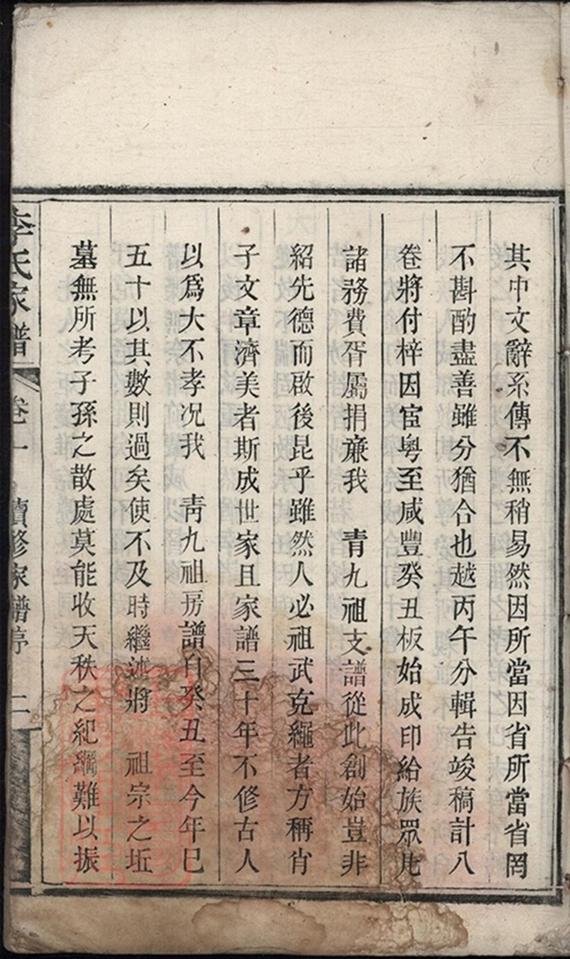 其中文辭系傳不無稍易然因所當因省所當省罔
不斟酌盡善雖分猶合也越丙午分輯告竣稿計八
卷將付梓因宦粵至咸豐癸丑板始成印給族眾凡
諸務費胥屬捐廉我 青九祖支譜從此創始豈非
紹先德而啟後昆乎雖然人必祖武克繩者方稱肖
子文章濟美者斯成世家且家譜三十年不修古人
以為大不孝況我 青九祖房譜自癸丑至今年巳
五十以其數則過矣使不及時繼述將 祖宗之坵
墓無所考子孫之散處莫能收天秩之紀綱難以振
李氏家譜 卷一 續修家譜序 二